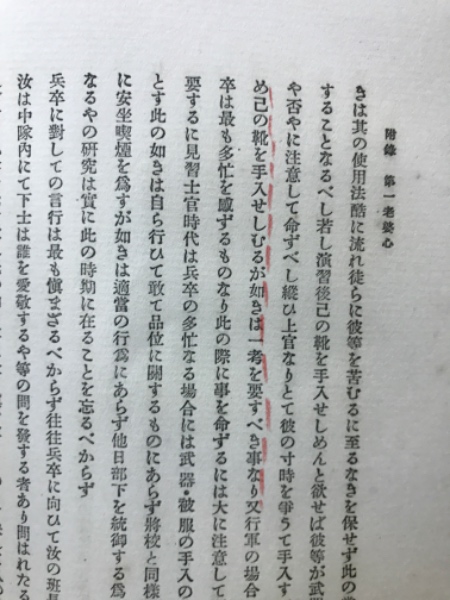 附錄　第一老婆心
きは其の使用法酷に流れ徒らに彼等を苦むるに至るなきを保せず此の
することなるべし若し演習後己の靴を手入せしめんと欲せば彼等が武
や否やに注意して命ずべし縱ひ上官なりとて彼の寸時を爭うて手入す
め己の靴を手入せしむるが如きは一考を要すべき事なり又行軍の場合
卒は最も多忙を感ずるものなり此の際に事を命ずるには大に注意して
要するに見習士官時代は兵卒の多忙なる場合には武器・被服の手入の
とす此の如きは自ら行ひて敢て品位に關するものにあらず將校と同樣
に安坐喫煙を爲すが如きは適當の行爲にあらず他日部下を統御する爲
なるやの硏究は實に此の時期に在ることを忘るべからず
兵卒に對しての言行は最も愼まざるべからず往往兵卒に向ひて汝の班長
汝は中隊內にて下士は誰を愛敬するや等の問を發する者あり問はれたる